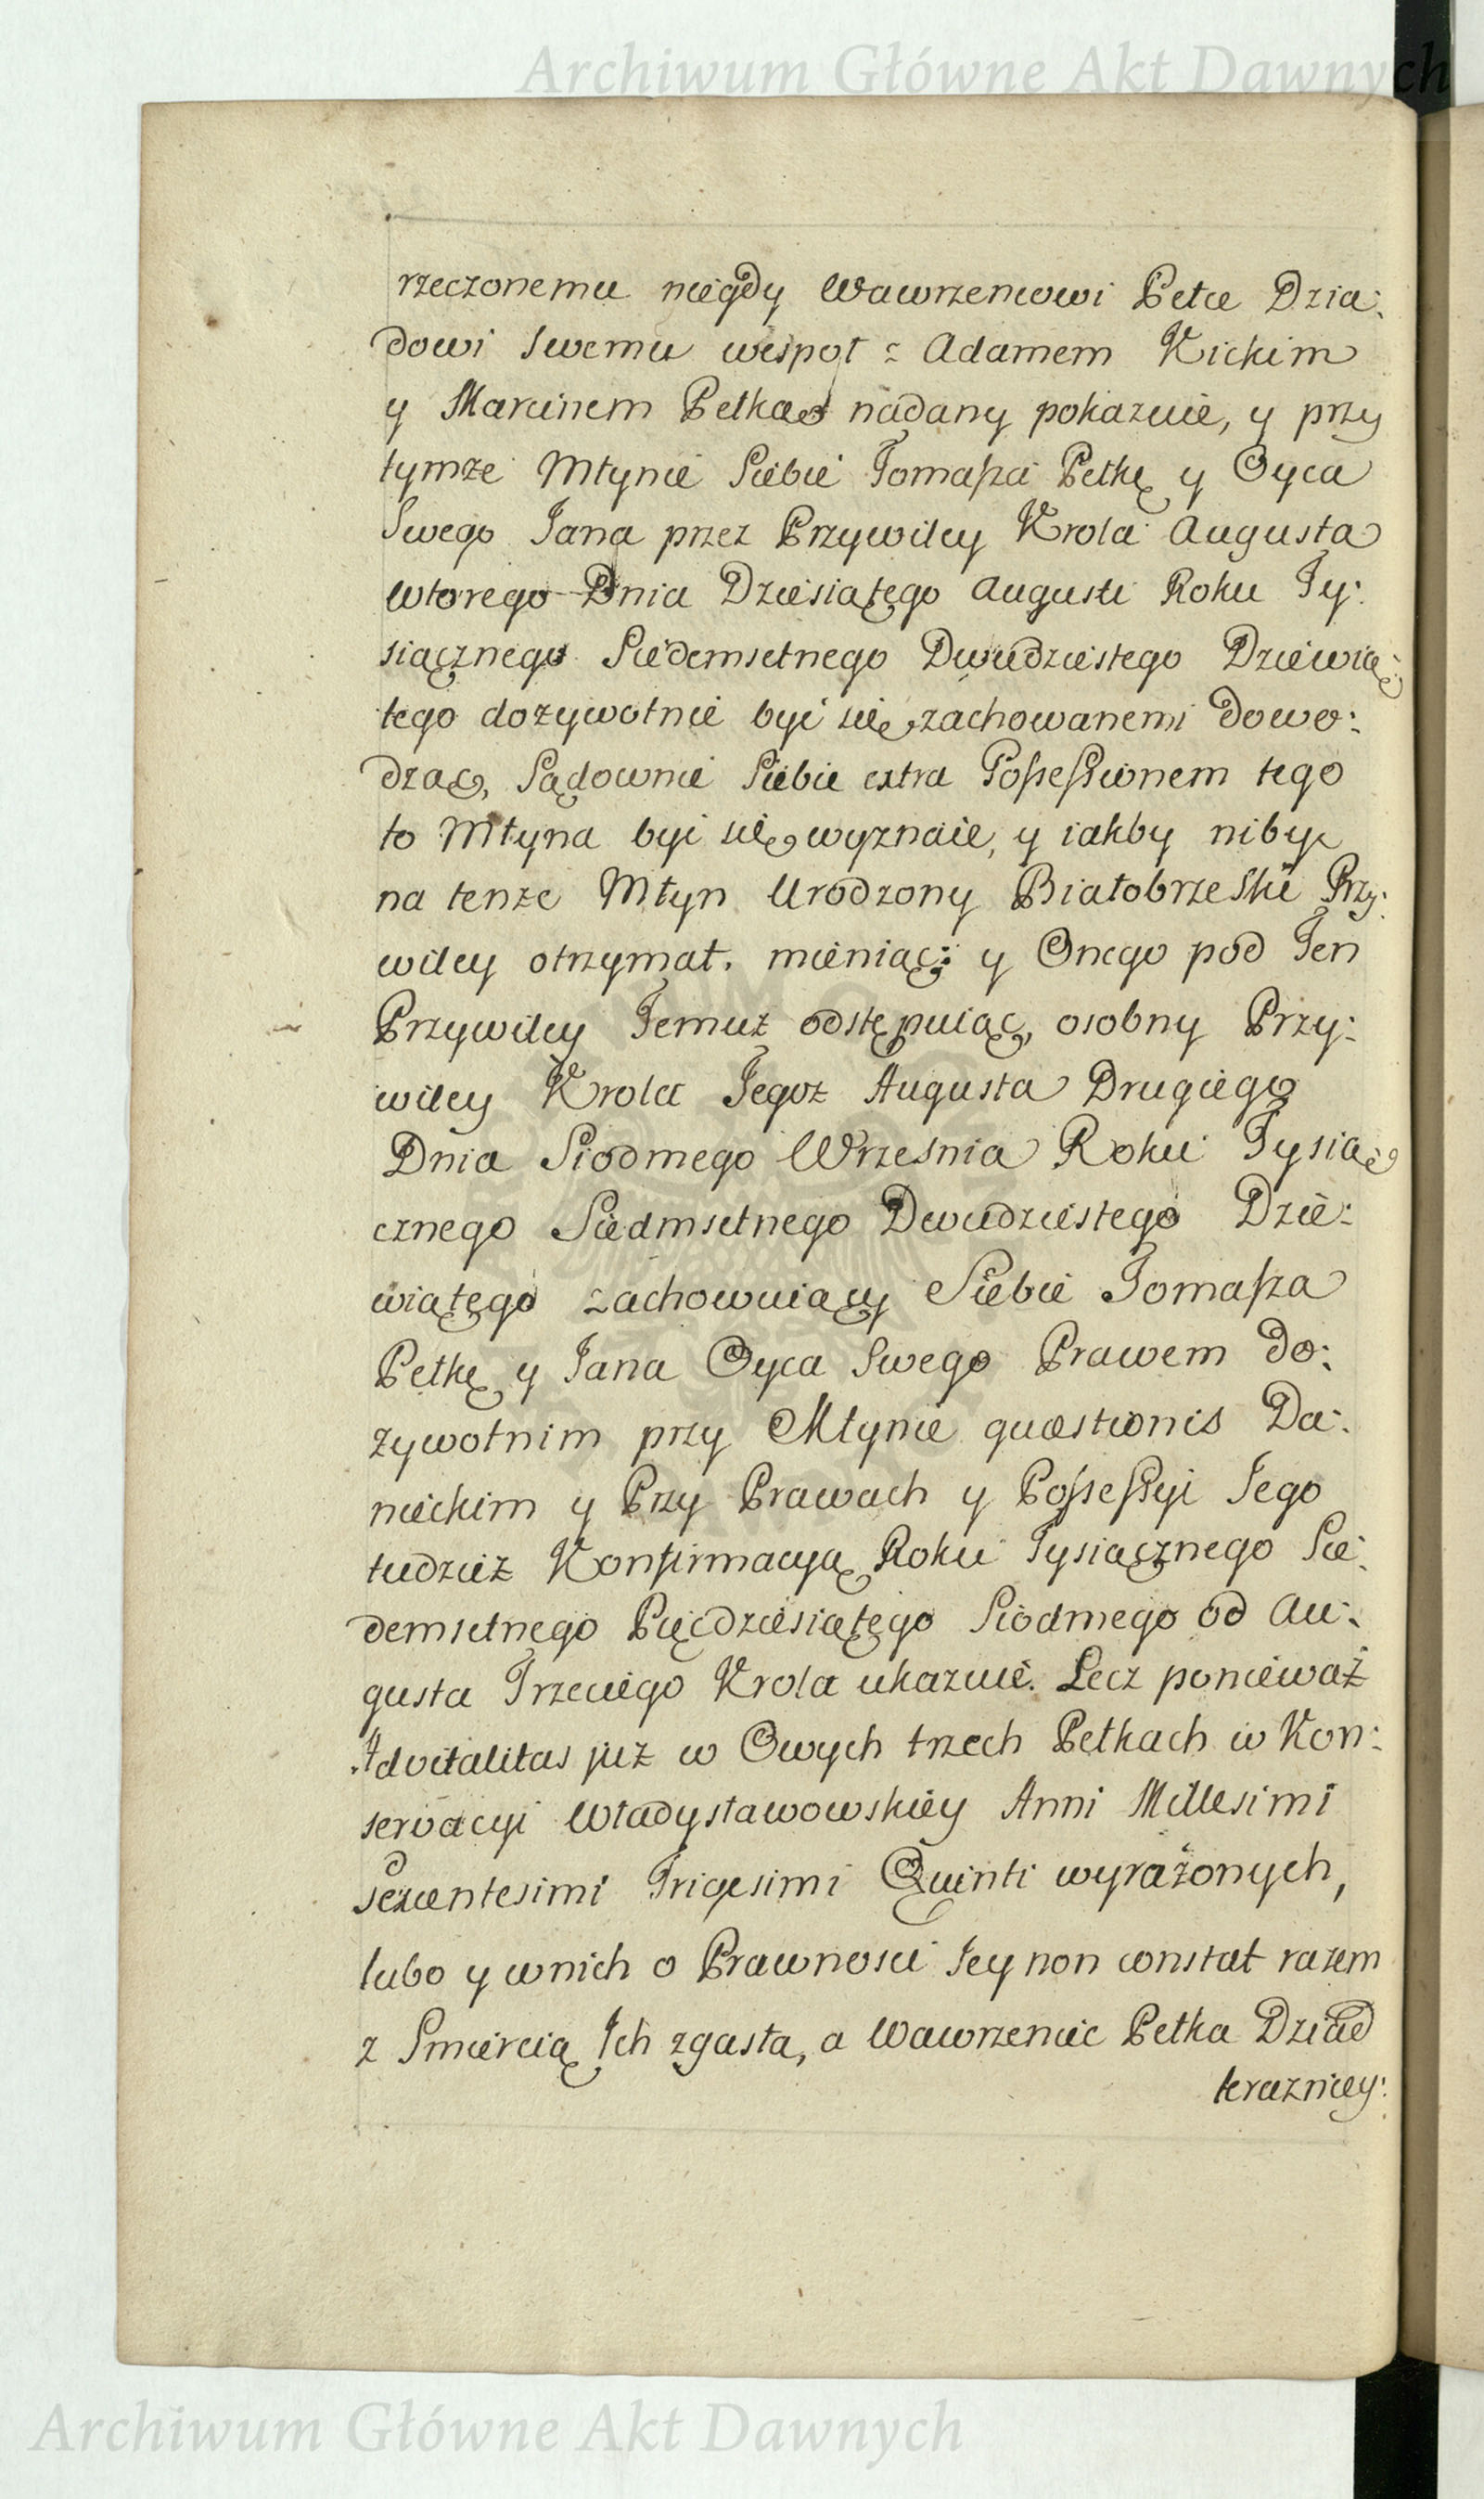 Archiwum Główne Akt Dawnych
rzeczonemu niegdy Wawrzencowi Petce Dzia:
dowi Swemu wespoł z Adamem Kickim
y Marcinem Petką nadany pokazuie, y przy
tymże Młynie Siebie Tomaſza Petkę y Oyca
Swego Jana przez Przywiley Krola Augusta
wtorego Dnia Dziesiątego Augusti Roku Ty:
siącznego Siedemsetnego Dwudziestego Dziewią:
tego dożywotnie być się zachowanemi dowo:
dząc, Sądownie Siebie extra Poſseſsionem tego
to Młyna być się wyznaie, y iakby niby
na tenże Młyn Urodzony Białobrzeski Przy:
wiley otrzymał. mieniąc; y Onego pod Ten
Przywiley Temuż odstępuiąc, osobny Przy:
wiley Krola Tegoż Augusta Drugiego
Dnia Siodmego Września Roku Tysią:
cznego Siedmsetnego Dwudziestego Dzie:
wiątego zachowuiący Siebie Tomaſza
Petkę y Jana Oyca Swego Prawem Do:
żywotnim przy Młynie quæstionis Da:
nieckim y Przy Prawach y Poſseſsyi Jego
tudzież Konfirmacyą Roku Tysiącznego Sie:
demsetnego Pięćdziesiątego Siodmego od Au:
gusta Trzeciego Krola ukazuie. Lecz ponieważ
Advitalitas już w Owych trzech Petkach w Kon:
serwacyi Władysławowskiey Anni Millesimi
Sexcentesimi Trigesimi Quinti wyrażonych,
lubo y wnich o Prawności Jey non constat razem
z Śmiercią Ich zgasła, a Wawrzeniec Petka Dziad
terazniey:
Archiwum Główne Akt Dawnych